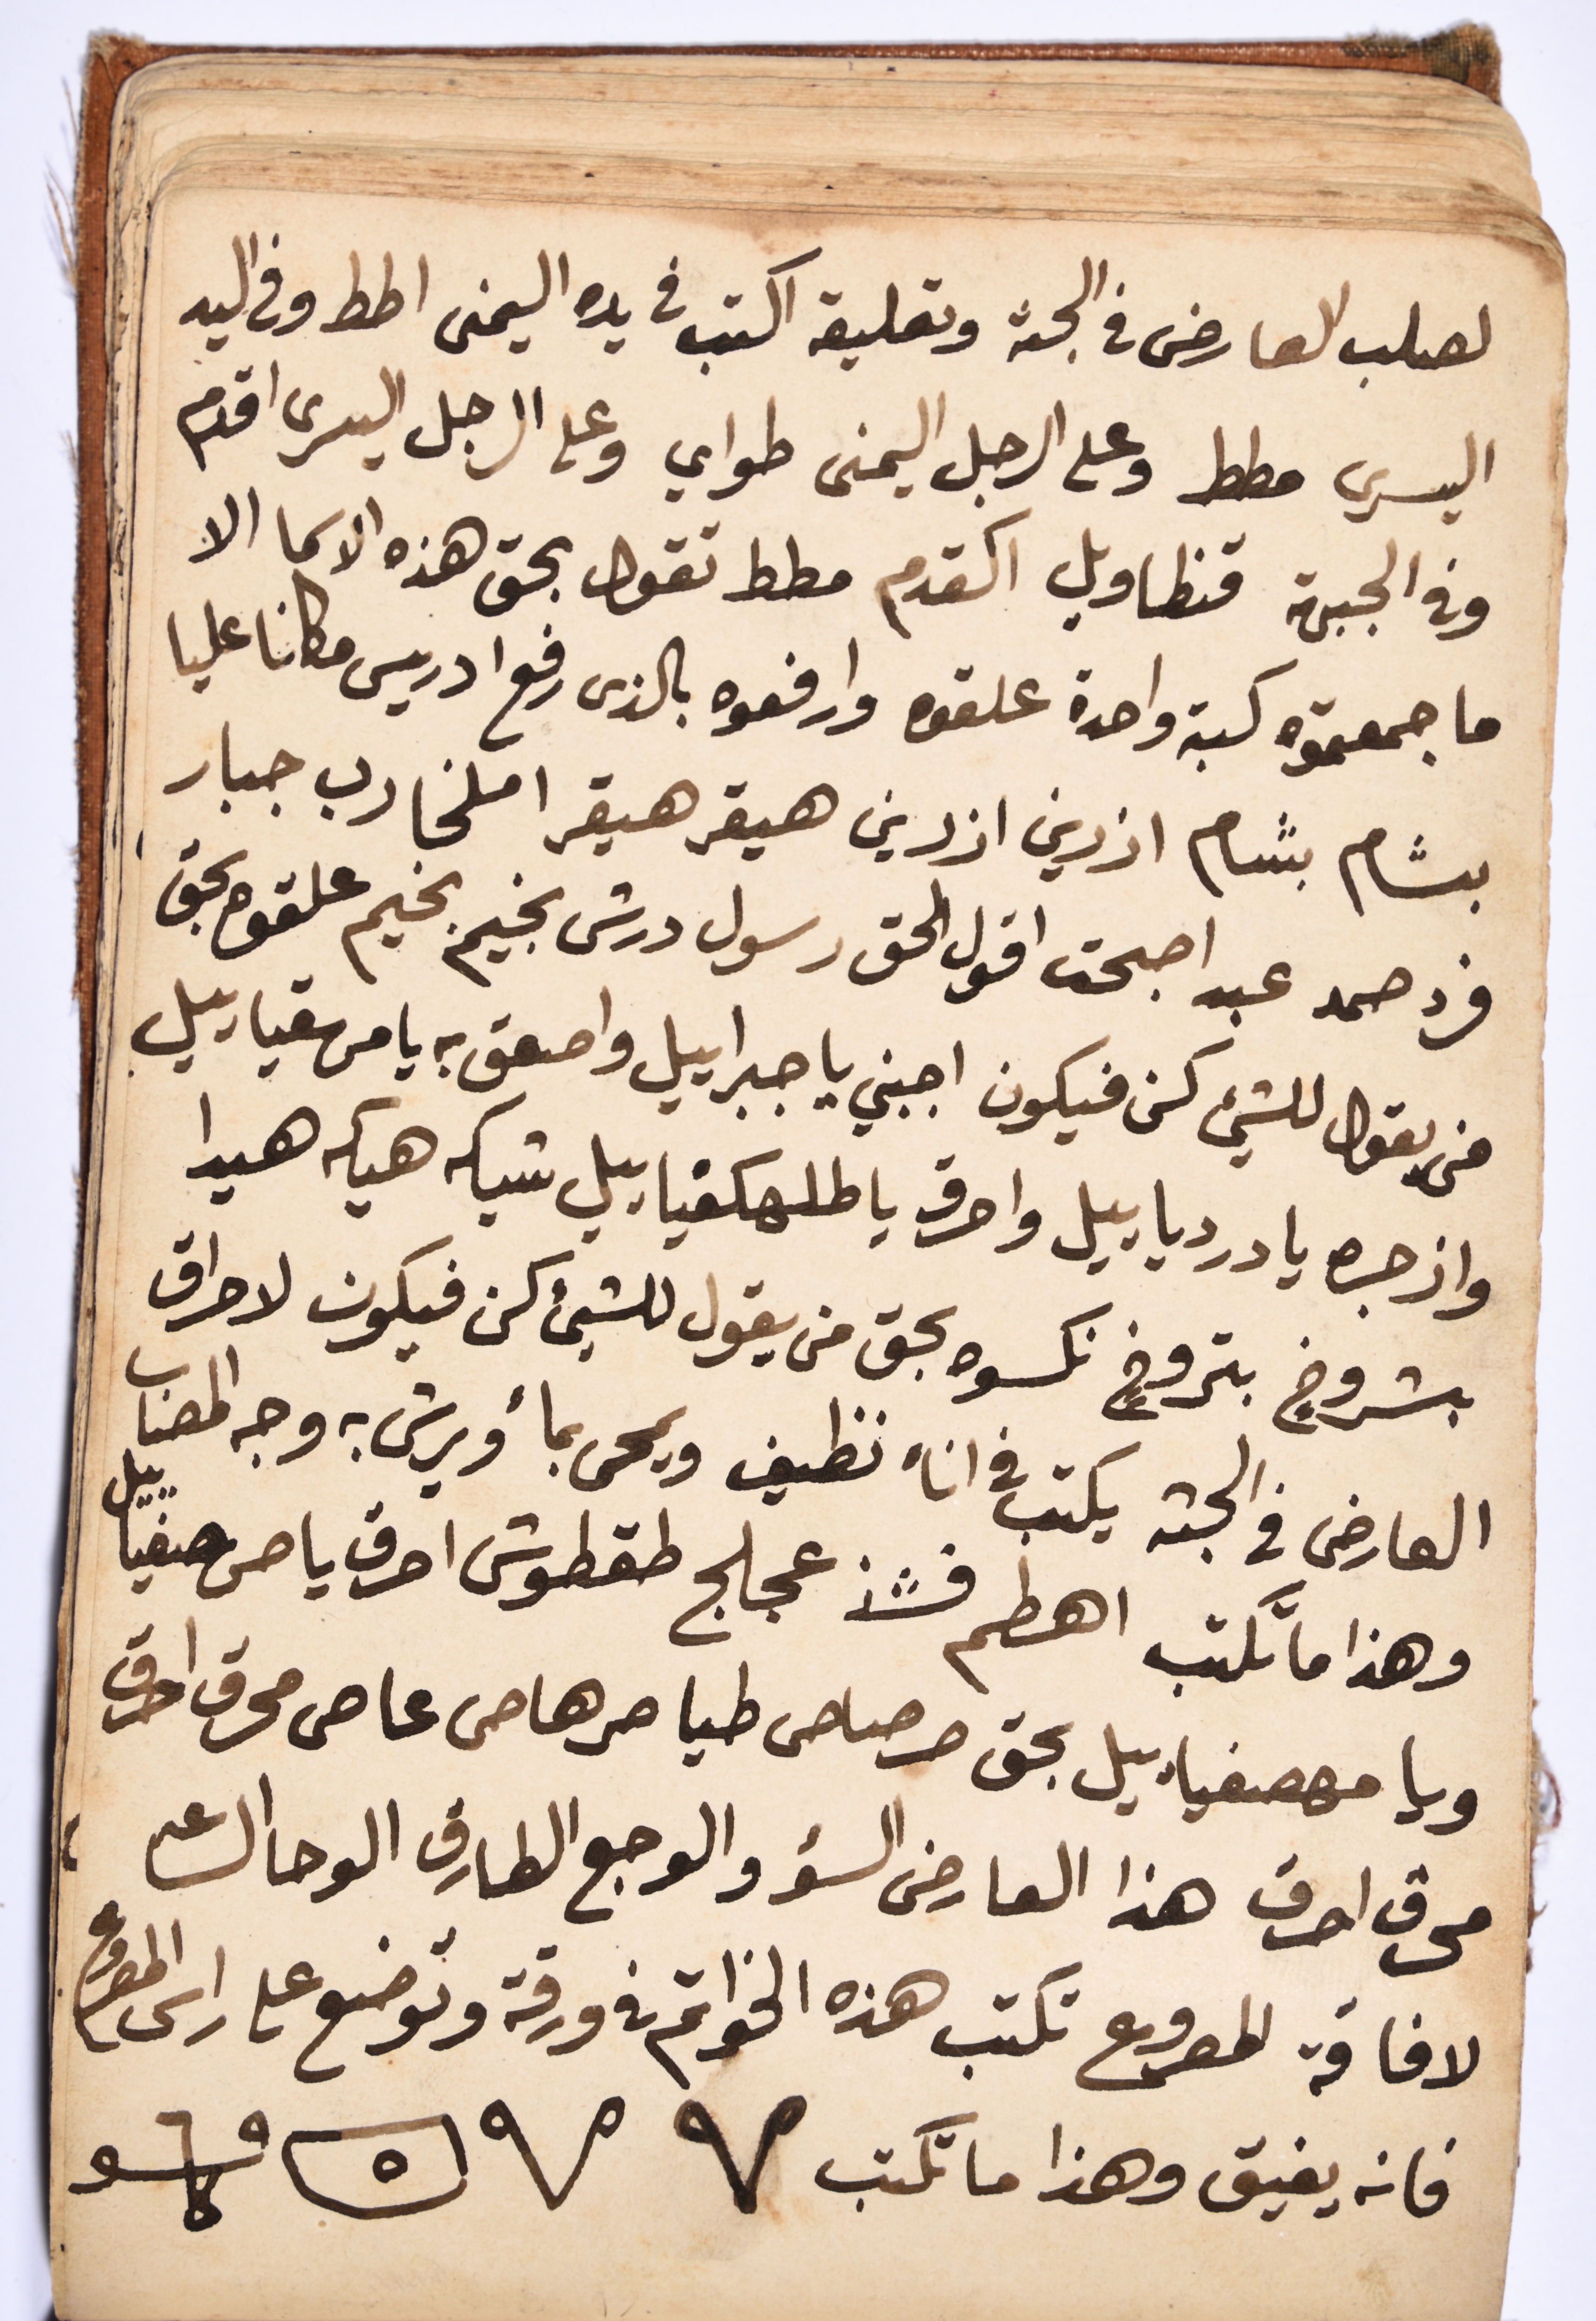 لصلب العارض فى الجثة وتعليقه اكتب فى يده اليمنى اطط وفى اليد
اليسرى مطط وعلى الرجل اليمنى طواى وعلى الرجل اليسرى اقدم
وفى الجبهة قنظاويل اكقدم مطط تقول بحق هذه الاسما الا
ما جمعتموه كبة واحدة علقوه وارفعوه بالذى رفع ادريس مكانا عليا
بشام بشام ازرين ازرين هيقر هيقر املخا رب جبار
فرد صمد عبد اجبحت اقول الحق رسول درش بخيم بخيم علقوه بحق
من يقول للشئ كن فيكون اجبني يا جبراييل واصعق به يا مرسقياييل
وازجره يا دردياييل واحرق يا طلهكفياييل شيكه هيكه هيدا
بشروخ بتروخ نكسوه بحق من يقول للشئ كن فيكون لاحراق
العارض فى الجثه يكتب فى اناء نظيف ويمحى بماء ويرش به وجه المصاب
وهذا ما تكتب اهطم فشذ عجلج طقطوش احرق يا صرصفياييل
ويا مهصفياييل بحق صرصاص طيا صرهاص عاص محرق احرق
محرق احرق هذا العارض السؤ والوجع الطارق الوحا الساعه
لافاقة المصروع تكتب هذه الخواتم فى ورقة وتوضع على راس المصروع
فانه يفيق وهذا ما تكتب